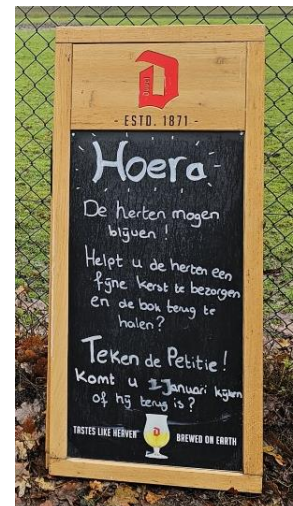 D
Duvel
- ESTD. 1871 -
Hoera
De herten mogen
blijven!
Helpt u de herten een
fijne kerst te bezorgen
en de bok terug te
halen?
Teken de Petitie!
Komt u 1 Januari kijken
of hij terug is?
TASTES LIKE HEAVEN
BREWED ON EARTH